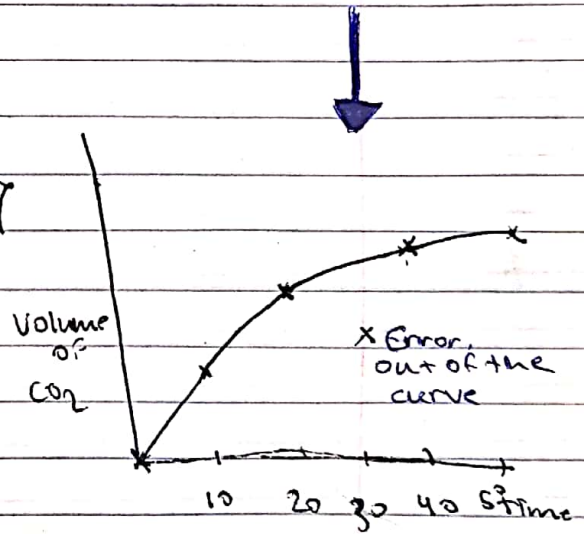 Volume
of
CO2
x Error,
out of the
curve
10 20 30 40 50
time